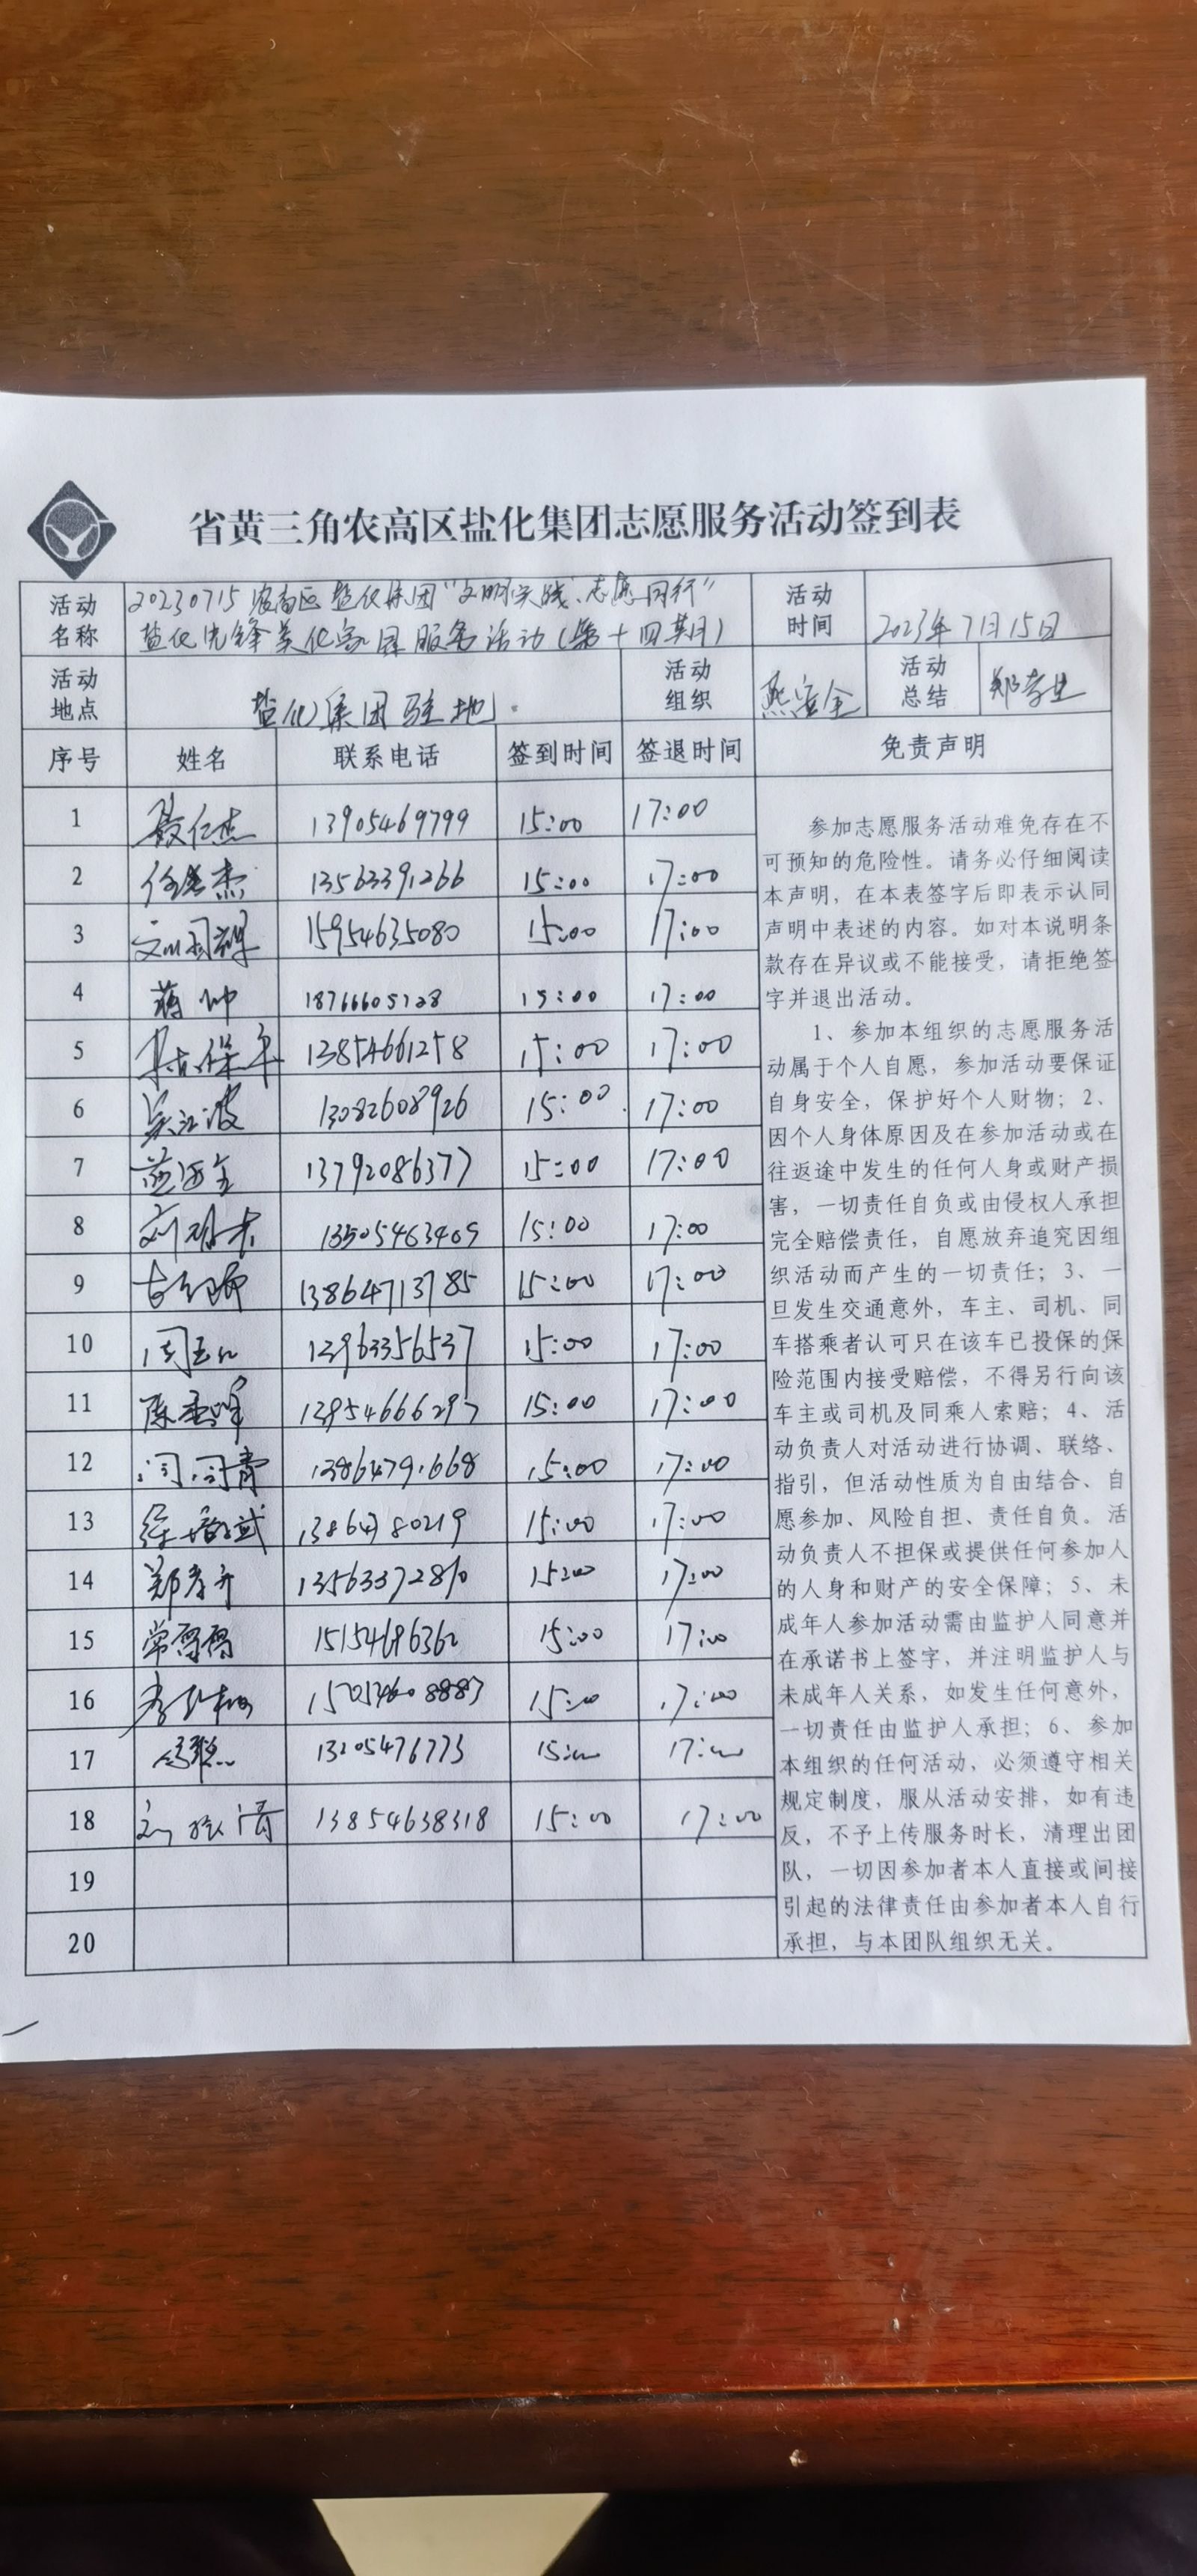 省黄三角农高区盐化集团志愿服务活动签到表
活动名称 20230715农高区盐化集团“文明实践、志愿同行”
盐化先锋美化家园服务活动(第十四期)
活动时间 2023年7月15日
活动地点 盐化集团驻地 活动组织 燕宝全 活动总结
序号 姓名 联系电话 签到时间 签退时间 免责声明
1 聂仁杰 13905469799 15:00 17:00
2 杰 13563391266 15:00 17:00
3 15954635080 15:00 17:00
4 蒋帅 18766605728 15:00 17:00
5 13854661258 15:00 17:00
6 吴江波 13082608926 15:00 17:00
7 13792086377 15:00 17:00
8 刘 13505463409 15:00 17:00
9 13864713785 15:00 17:00
10 周 13963356537 15:00 17:00
11 陈 13954666297 15:00 17:00
12 闫同青 13964791668 15:00 17:00
13 徐 武 13864780219 15:00 17:00
14 郑 15:00 17:00
15 常 15154696362 15:00 17:00
16 15:00 17:00
17 15:00 17:00
18 13854638318 15:00 17:00
19
20
参加志愿服务活动难免存在不
可预知的危险性。请务必仔细阅读
本声明，在本表签字后即表示认同
声明中表述的内容。如对本说明条
款存在异议或不能接受，请拒绝签
字并退出活动。
1、参加本组织的志愿服务活
动属于个人自愿，参加活动要保证
自身安全，保护好个人财物；2、
因个人身体原因及在参加活动或在
往返途中发生的任何人身或财产损
害，一切责任自负或由侵权人承担
完全赔偿责任，自愿放弃追究因组
织活动而产生的一切责任；3、一
旦发生交通意外，车主、司机、同
车搭乘者认可只在该车已投保的保
险范围内接受赔偿，不得另行向该
车主或司机及同乘人索赔；4、活
动负责人对活动进行协调、联络、
指引，但活动性质为自由结合、自
愿参加、风险自担、责任自负。活
动负责人不担保或提供任何参加人
的人身和财产的安全保障；5、未
成年人参加活动需由监护人同意并
在承诺书上签字，并注明监护人与
未成年人关系，如发生任何意外，
一切责任由监护人承担；6、参加
本组织的任何活动，必须遵守相关
规定制度，服从活动安排，如有违
反，不予上传服务时长，清理出团
队，一切因参加者本人直接或间接
引起的法律责任由参加者本人自行
承担，与本团队组织无关。